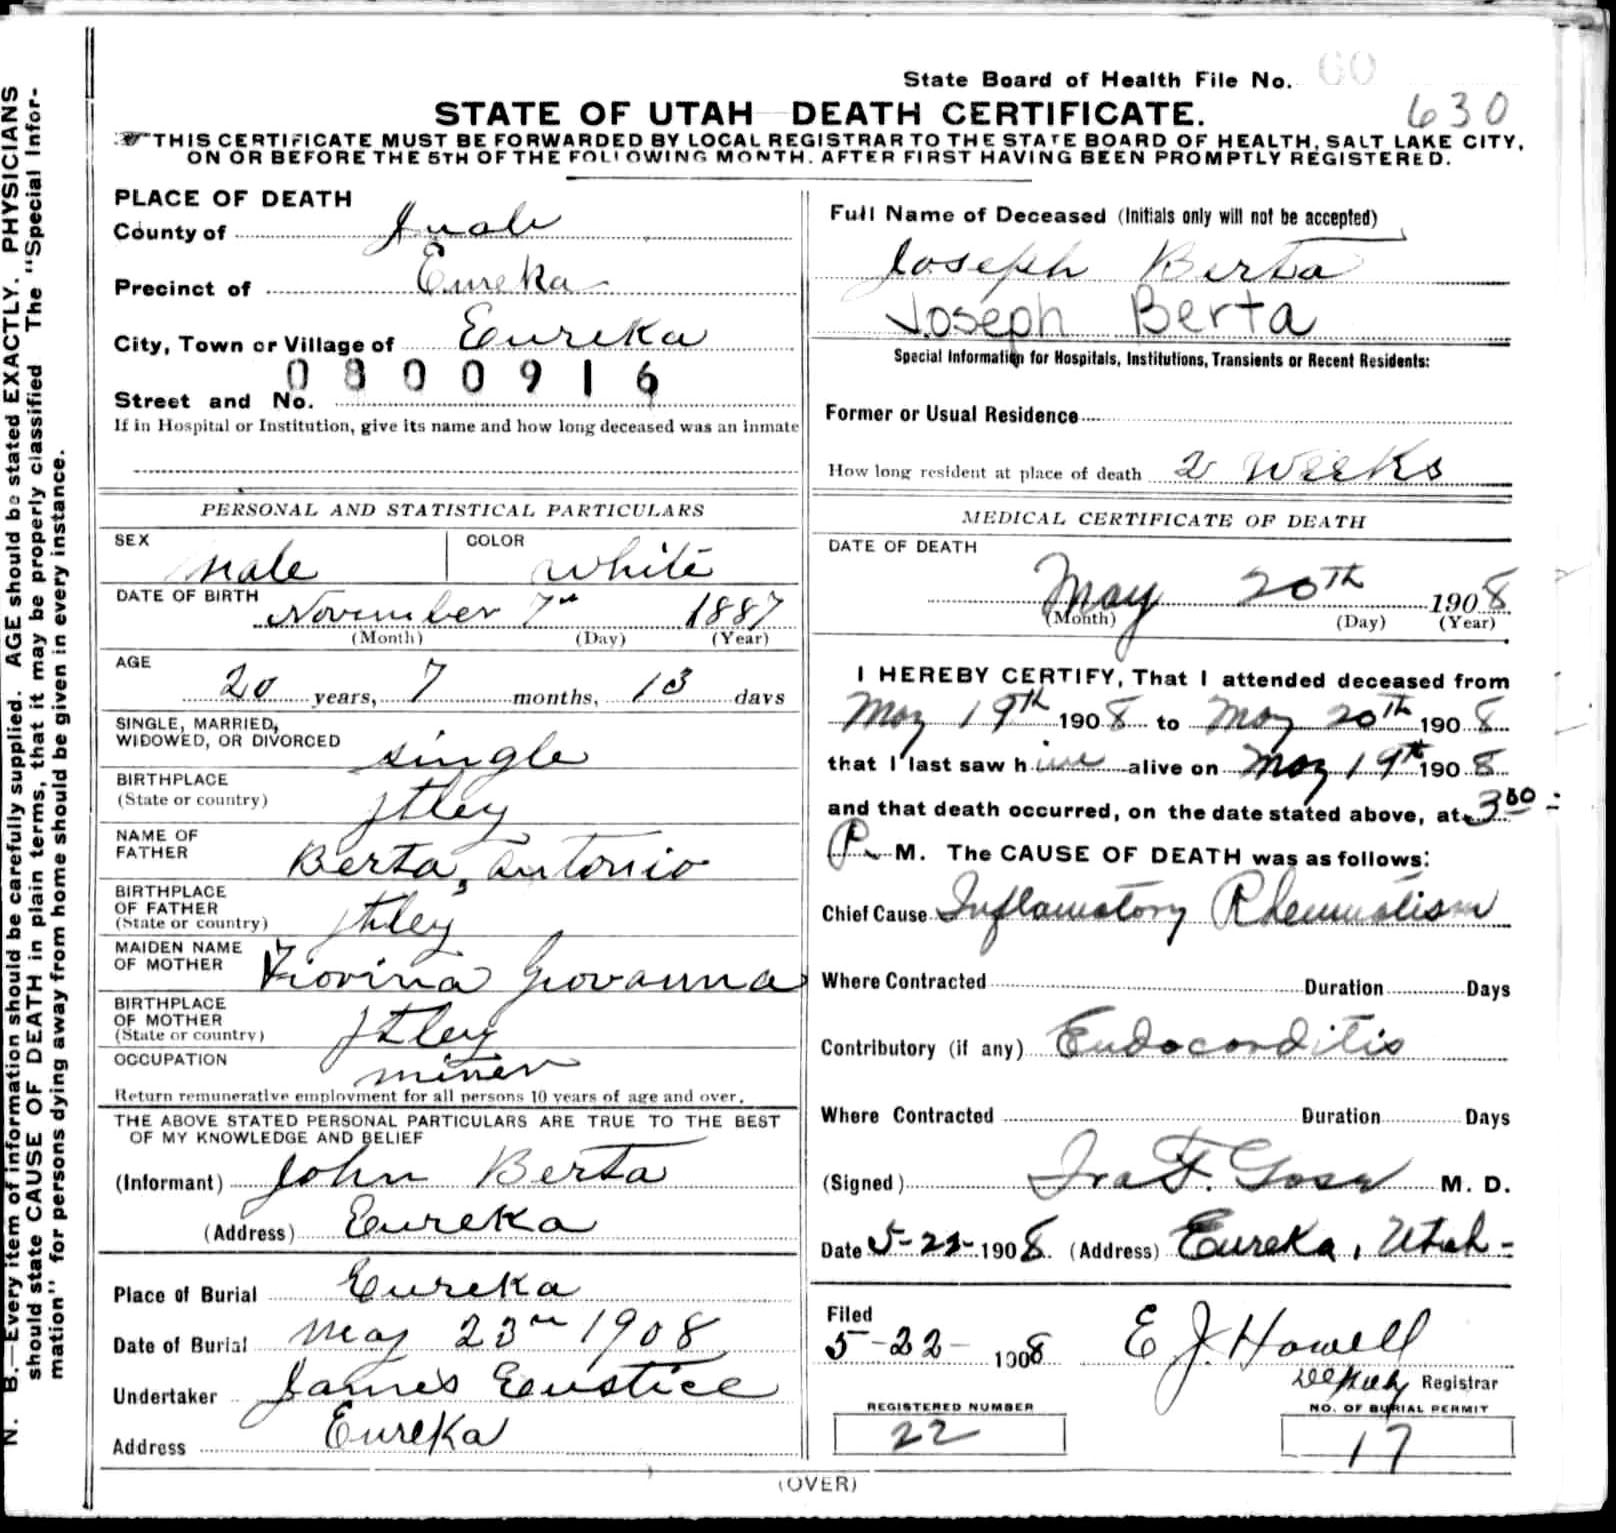 State Board of Health File No. 60
630
STATE OF UTAH DEATH CERTIFICATE.
THIS CERTIFICATE MUST BE FORWARDED BY LOCAL REGISTRAR TO THE STATE BOARD OF HEALTH, SALT LAKE CITY,
ON OR BEFORE THE 5TH OF THE FOLLOWING MONTH. AFTER FIRST HAVING BEEN PROMPTLY REGISTERED.
N. B.—Every item of information should be carefully supplied. AGE should be stated EXACTLY. PHYSICIANS
should state CAUSE OF DEATH in plain terms, that it may be properly classified The "Special Infor-
mation" for persons dying away from home should be given in every instance.
PLACE OF DEATH
County of Juab
Precinct of Eureka
City, Town or Village of Eureka
0800916
Street and No.
If in Hospital or Institution, give its name and how long deceased was an inmate
PERSONAL AND STATISTICAL PARTICULARS
SEX Male COLOR White
DATE OF BIRTH November 7th 1887
(Month) (Day) (Year)
AGE
20 years, 7 months, 13 days
SINGLE, MARRIED,
WIDOWED, OR DIVORCED single
BIRTHPLACE
(State or country) Itley
NAME OF
FATHER Berta, Antonio
BIRTHPLACE
OF FATHER
(State or country) Itley
MAIDEN NAME
OF MOTHER Giovanna
BIRTHPLACE
OF MOTHER
(State or country) Itley
OCCUPATION miner
Return remunerative employment for all persons 10 years of age and over.
THE ABOVE STATED PERSONAL PARTICULARS ARE TRUE TO THE BEST
OF MY KNOWLEDGE AND BELIEF
(Informant) John Berta
(Address) Eureka
Place of Burial Eureka
Date of Burial May 23rd 1908
Undertaker James Eustice
Address Eureka
Full Name of Deceased (Initials only will not be accepted)
Joseph Berta
Joseph Berta
Special Information for Hospitals, Institutions, Transients or Recent Residents:
Former or Usual Residence
How long resident at place of death 2 Weeks
MEDICAL CERTIFICATE OF DEATH
DATE OF DEATH
May 20th 1908
(Month) (Day) (Year)
I HEREBY CERTIFY, That I attended deceased from
May 19th 1908 to May 20th 1908
that I last saw him alive on May 19th 1908
and that death occurred, on the date stated above, at 3 00
P. M. The CAUSE OF DEATH was as follows:
Chief Cause Inflamatory Rheumatism
Where Contracted Duration Days
Contributory (if any) Endocarditis
Where Contracted Duration Days
(Signed) Ira F. M. D.
Date 5-22-1908. (Address) Eureka, Utah-
Filed
5-22- 1908 E J. Howell
Deputy Registrar
REGISTERED NUMBER
22
NO. OF BURIAL PERMIT
17
(OVER)